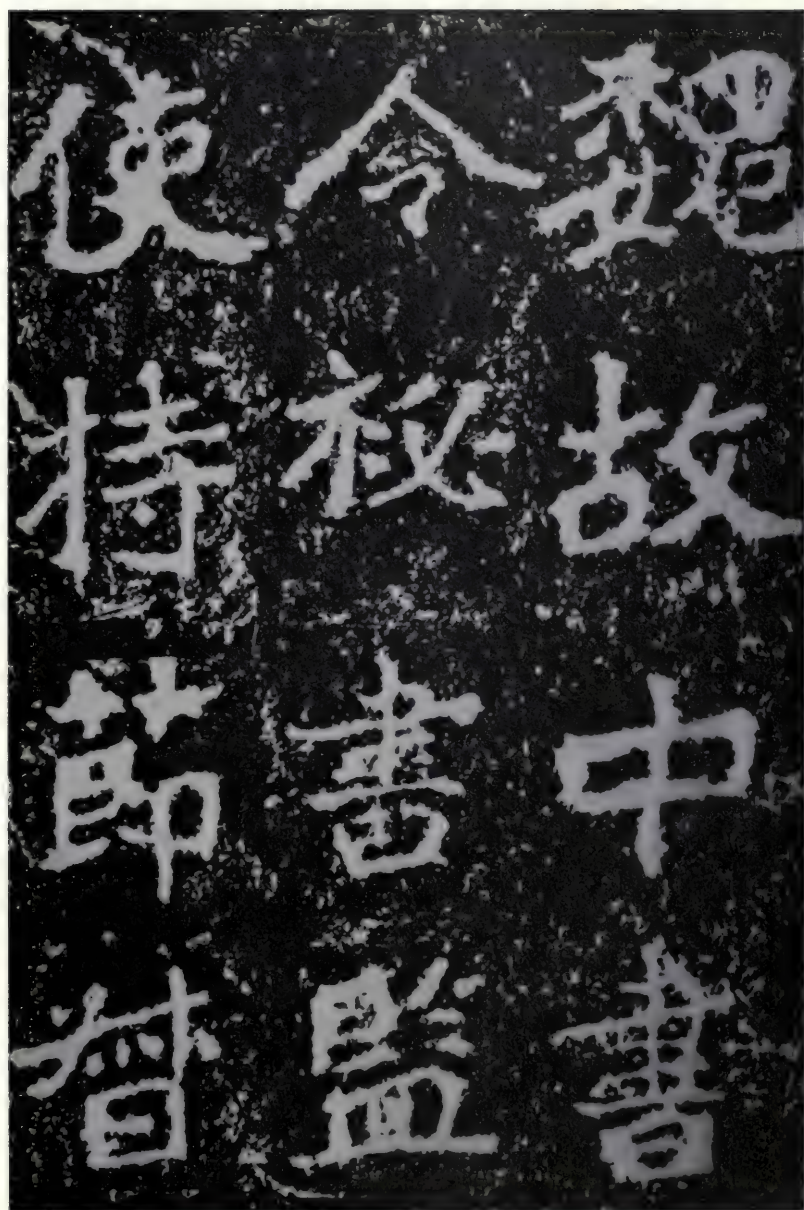 魏故中書
令秘書監
使持節督